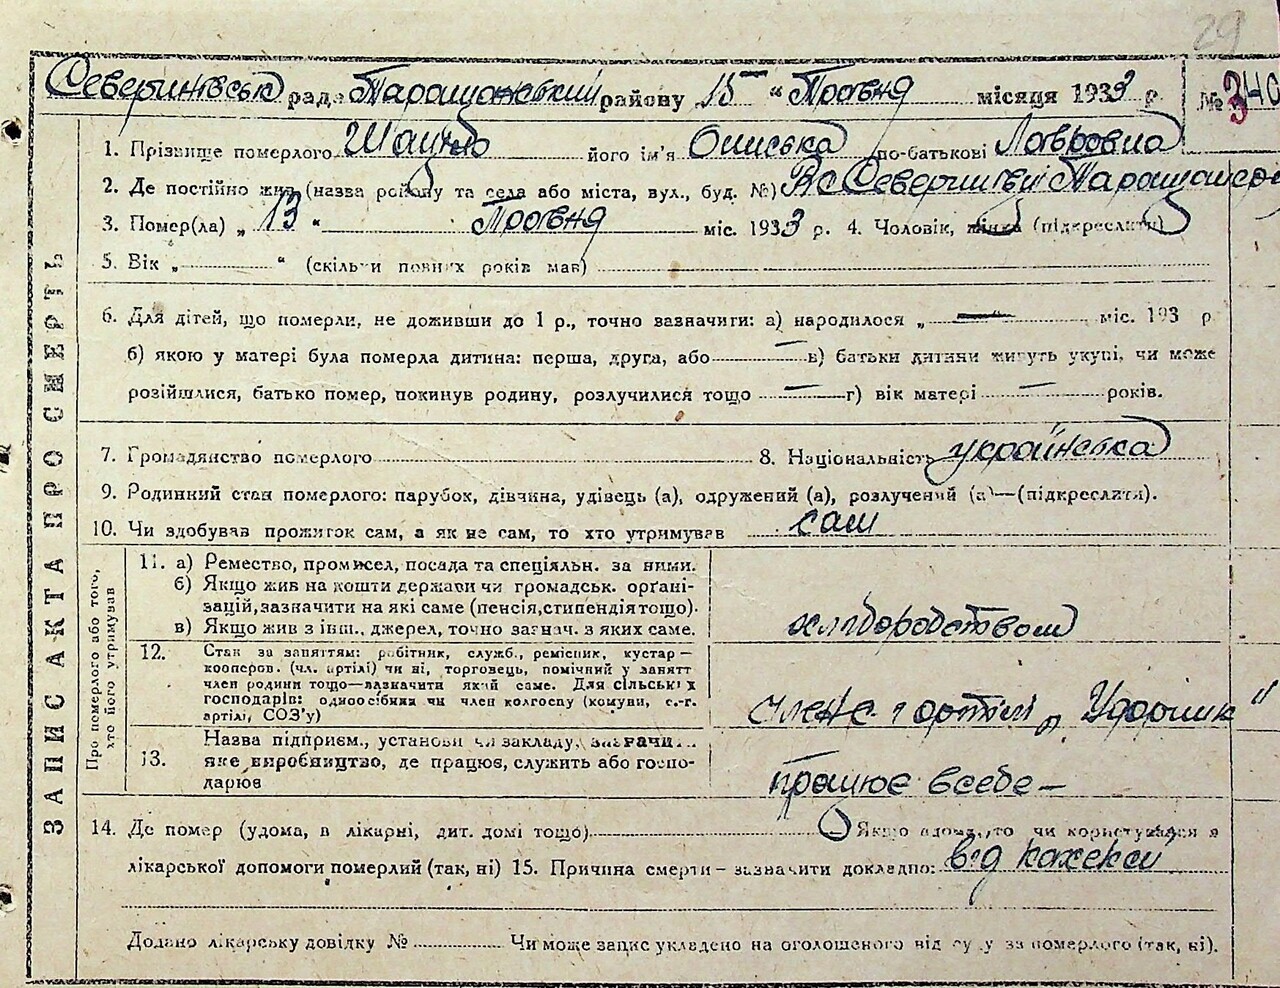 29
Северинівська рада Таращанський району 15 " Травня місяця 1933 р. № 340
ЗАПИС АКТА ПРО СМЕРТЬ
1. Прізвище померлого його ім'я Ониська по-батькові Лавровна
2. Де постійно жив (назва району та села або міста, вул., буд. №)
3. Помер(ла) „ 13 " Травня міс. 1933 р. 4. Чоловік, жінка (підкреслити)
5. Вік „ " (скільки повних років мав)
6. Для дітей, що померли, не доживши до 1 р., точно зазначити: а) народилося „ — міс. 193 р.
б) якою у матері була померла дитина: перша, друга, або — в) батьки дитини живуть укупі, чи може
розійшлися, батько помер, покинув родину, розлучилися тощо — г) вік матері — років.
7. Громадянство померлого 8. Національність українська
9. Родинний стан померлого: парубок, дівчина, удівець (а), одружений (а), розлучений (а)—(підкреслити).
10. Чи здобував прожиток сам, а як не сам, то хто утримував сам
Про померлого або того, хто його утримував
11. а) Ремество, промисел, посада та спеціяльн. за ними.
б) Якщо жив на кошти держави чи громадськ. орґані-
зацій, зазначити на які саме (пенсія, стипендія тощо).
в) Якщо жив з інш. джерел, точно зазнач. з яких саме.
хліборобством
12. Стан за заняттям: робітник, служб., ремісник, кустар—
кооперов. (чл. артілі) чи ні, торговець, помічний у занятт
член родини тощо—вазначити який саме. Для сільських
господарів: одноосібник чи член колгоспу (комуни, с.-г.
артілі, СОЗ'у)
член артілі „Ударник"
13. Назва підприєм., установи чи закладу, зазначити
яке виробництво, де працює, служить або госпо-
дарює
працює в себе —
14. Де помер (удома, в лікарні, дит. домі тощо) Якщо вдома, то чи користувався я
лікарської допомоги померлий (так, ні) 15. Причина смерти — зазначити докладно: від кахексії
Додано лікарську довідку № Чи може запис укладено на оголошеного від суду за померлого (так, ні).